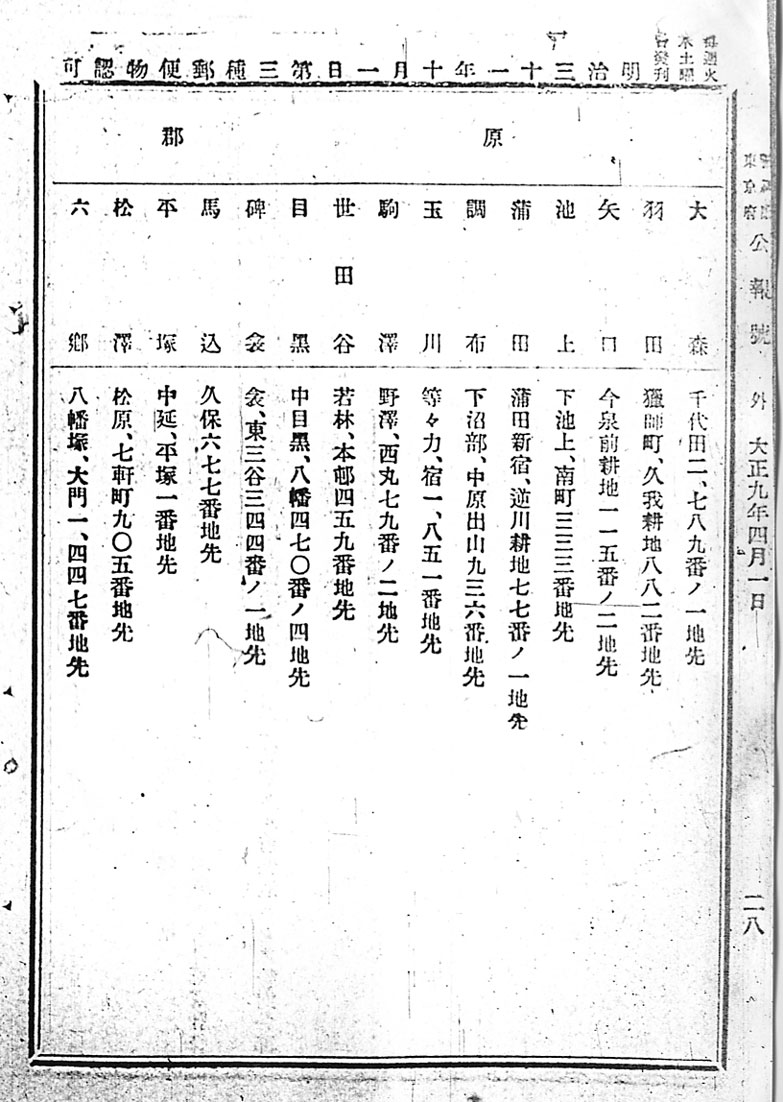 明治三十一年十月一日第三種郵便物認可
公報號外 大正九年四月一日
二八
原郡
大森 千代田二、七八九番ノ一地先
羽田 獵師町、久我耕地八八二番地先
矢口 今泉前耕地一一五番ノ二地先
池上 下池上、南町三三三番地先
蒲田 蒲田新宿、逆川耕地七七番ノ一地先
調布 下沼部、中原出山九三六番地先
玉川 等々力、宿一、八五一番地先
駒澤 野澤、西丸七九番ノ二地先
世田谷 若林、本邨四五九番地先
目黑 中目黑、八幡四七〇番ノ四地先
碑衾 衾、東三谷三四四番ノ一地先
馬込 久保六七七番地先
平塚 中延、平塚一番地先
松澤 松原、七軒町九〇五番地先
六鄕 八幡塚、大門一、四四七番地先